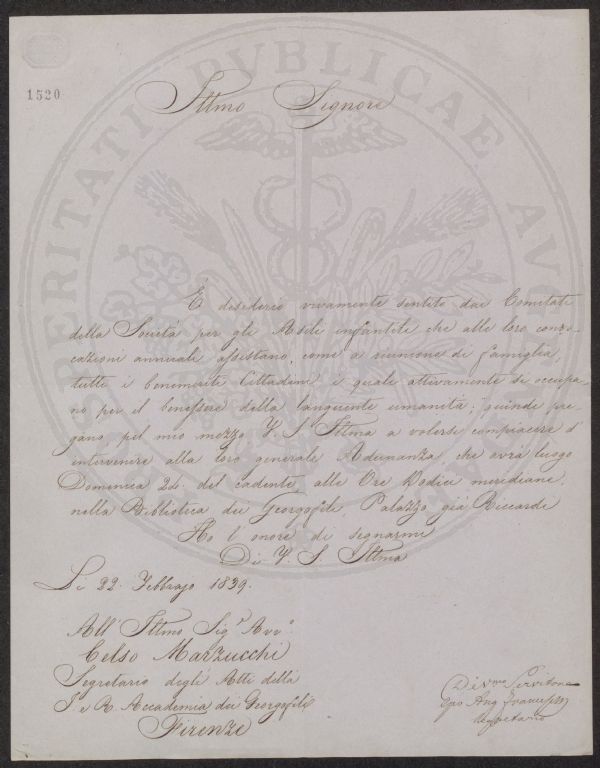 1520
PROSPERITATI PUBLICAE AUGENDAE
Illmo Signore
È desiderio vivamente sentito dai Comitati
della Società per gli Asili infantili che alle loro convo-
cazioni annuali assistano, come a riunione di famiglia,
tutti i benemeriti Cittadini i quali attivamente si occupa-
no per il benessere della languente umanità; quindi pre-
gano pel mio mezzo V. S. Illma a volersi compiacere d'
intervenire alla loro generale Adunanza che avrà luogo
Domenica 24. del cadente, alle Ore Dodici meridiane,
nella Biblioteca dei Georgofili, Palazzo già Riccardi
Ho l'onore di segnarmi
Di V. S. Illma
Li 22. Febbrajo 1839.
All' Illmo Sigr Avvo
Celso Marzucchi
Segretario degli Atti della
I. e R. Accademia dei Georgofili
Firenze
Devmo Servitore
Segretario